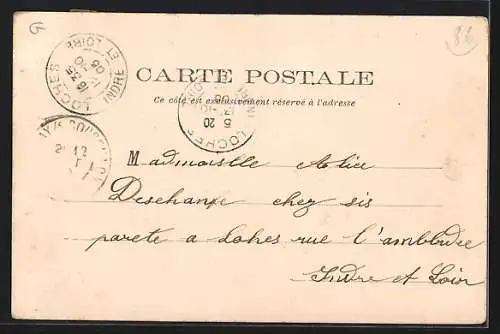 G
CARTE POSTALE
Ce côté est exclusivement réservé à l'adresse
LOCHES
INDRE ET LOIRE
LOCHES
5 20
Mademoiselle Alice
Deschanse chez sis
parete a Lohes rue l'amblidee
Indre et Loir